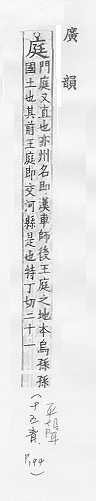 廣韻
庭門庭又直也亦州名即漢車師後王庭之地本烏孫孫
國土也其前王庭即交河縣是也特丁切二十一
平聲
(十五青
P.194)